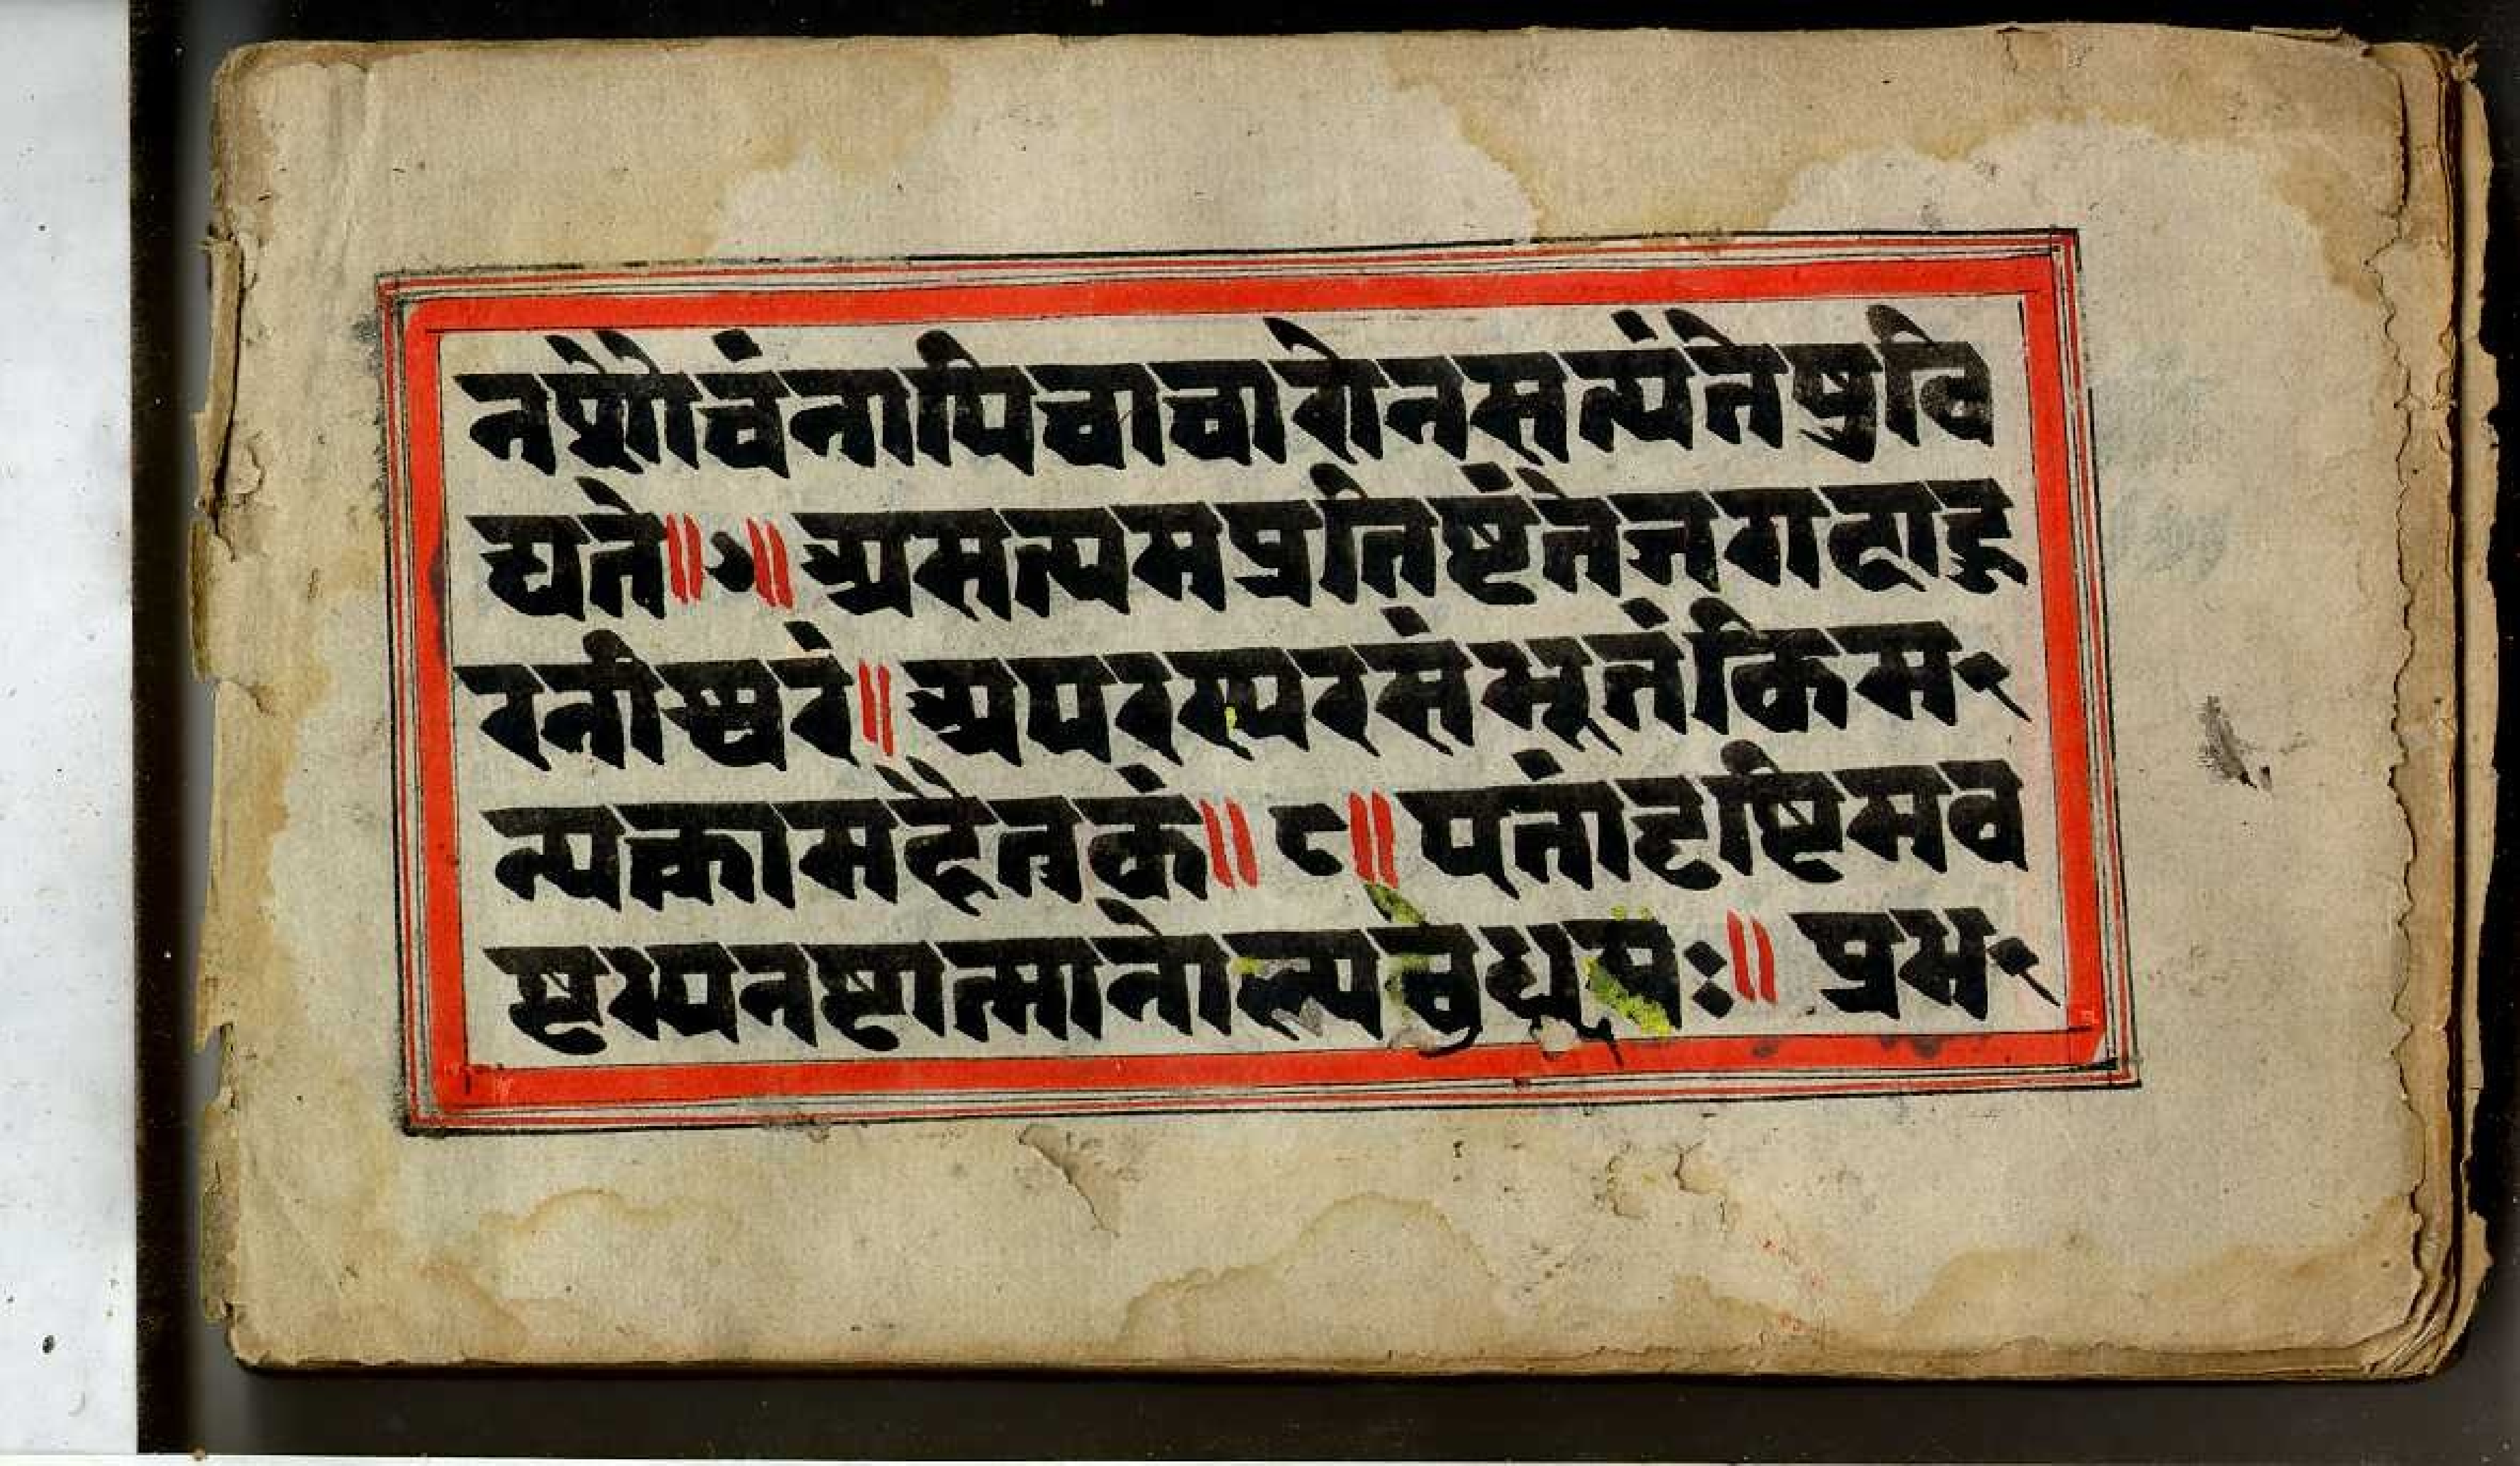 नशौचंनापिचाचारोनसत्यंतेषुवि
द्यते॥७॥असत्यमप्रतिष्टंतेजगदाहु
रनीश्वरं॥अपरस्परसंभूतंकिम
न्यत्कामहैतुकं॥८॥एतांदृष्टिमव
ष्टभ्यनष्टात्मानोल्पबुद्धयः॥प्रभ